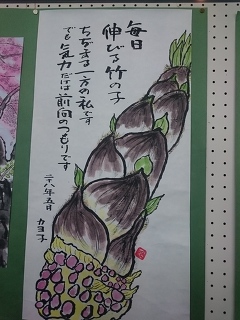 毎日
伸びる竹の子
ちぢまる一方の私です
でも気力だけは前向のつもりです
二十八年五月
カヨ子